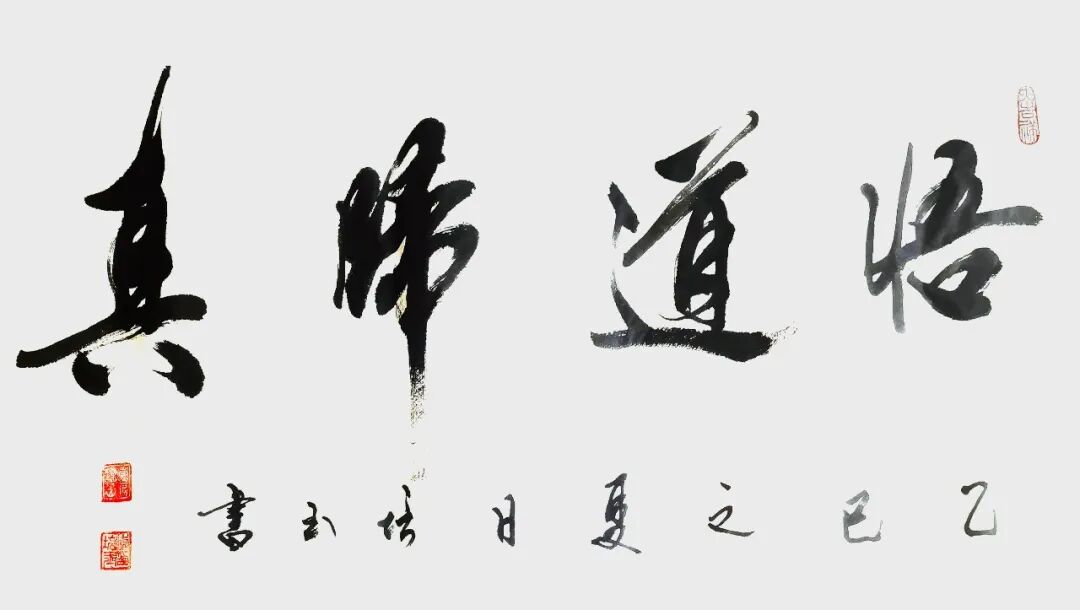 悟道歸真
乙巳之夏日培玉書